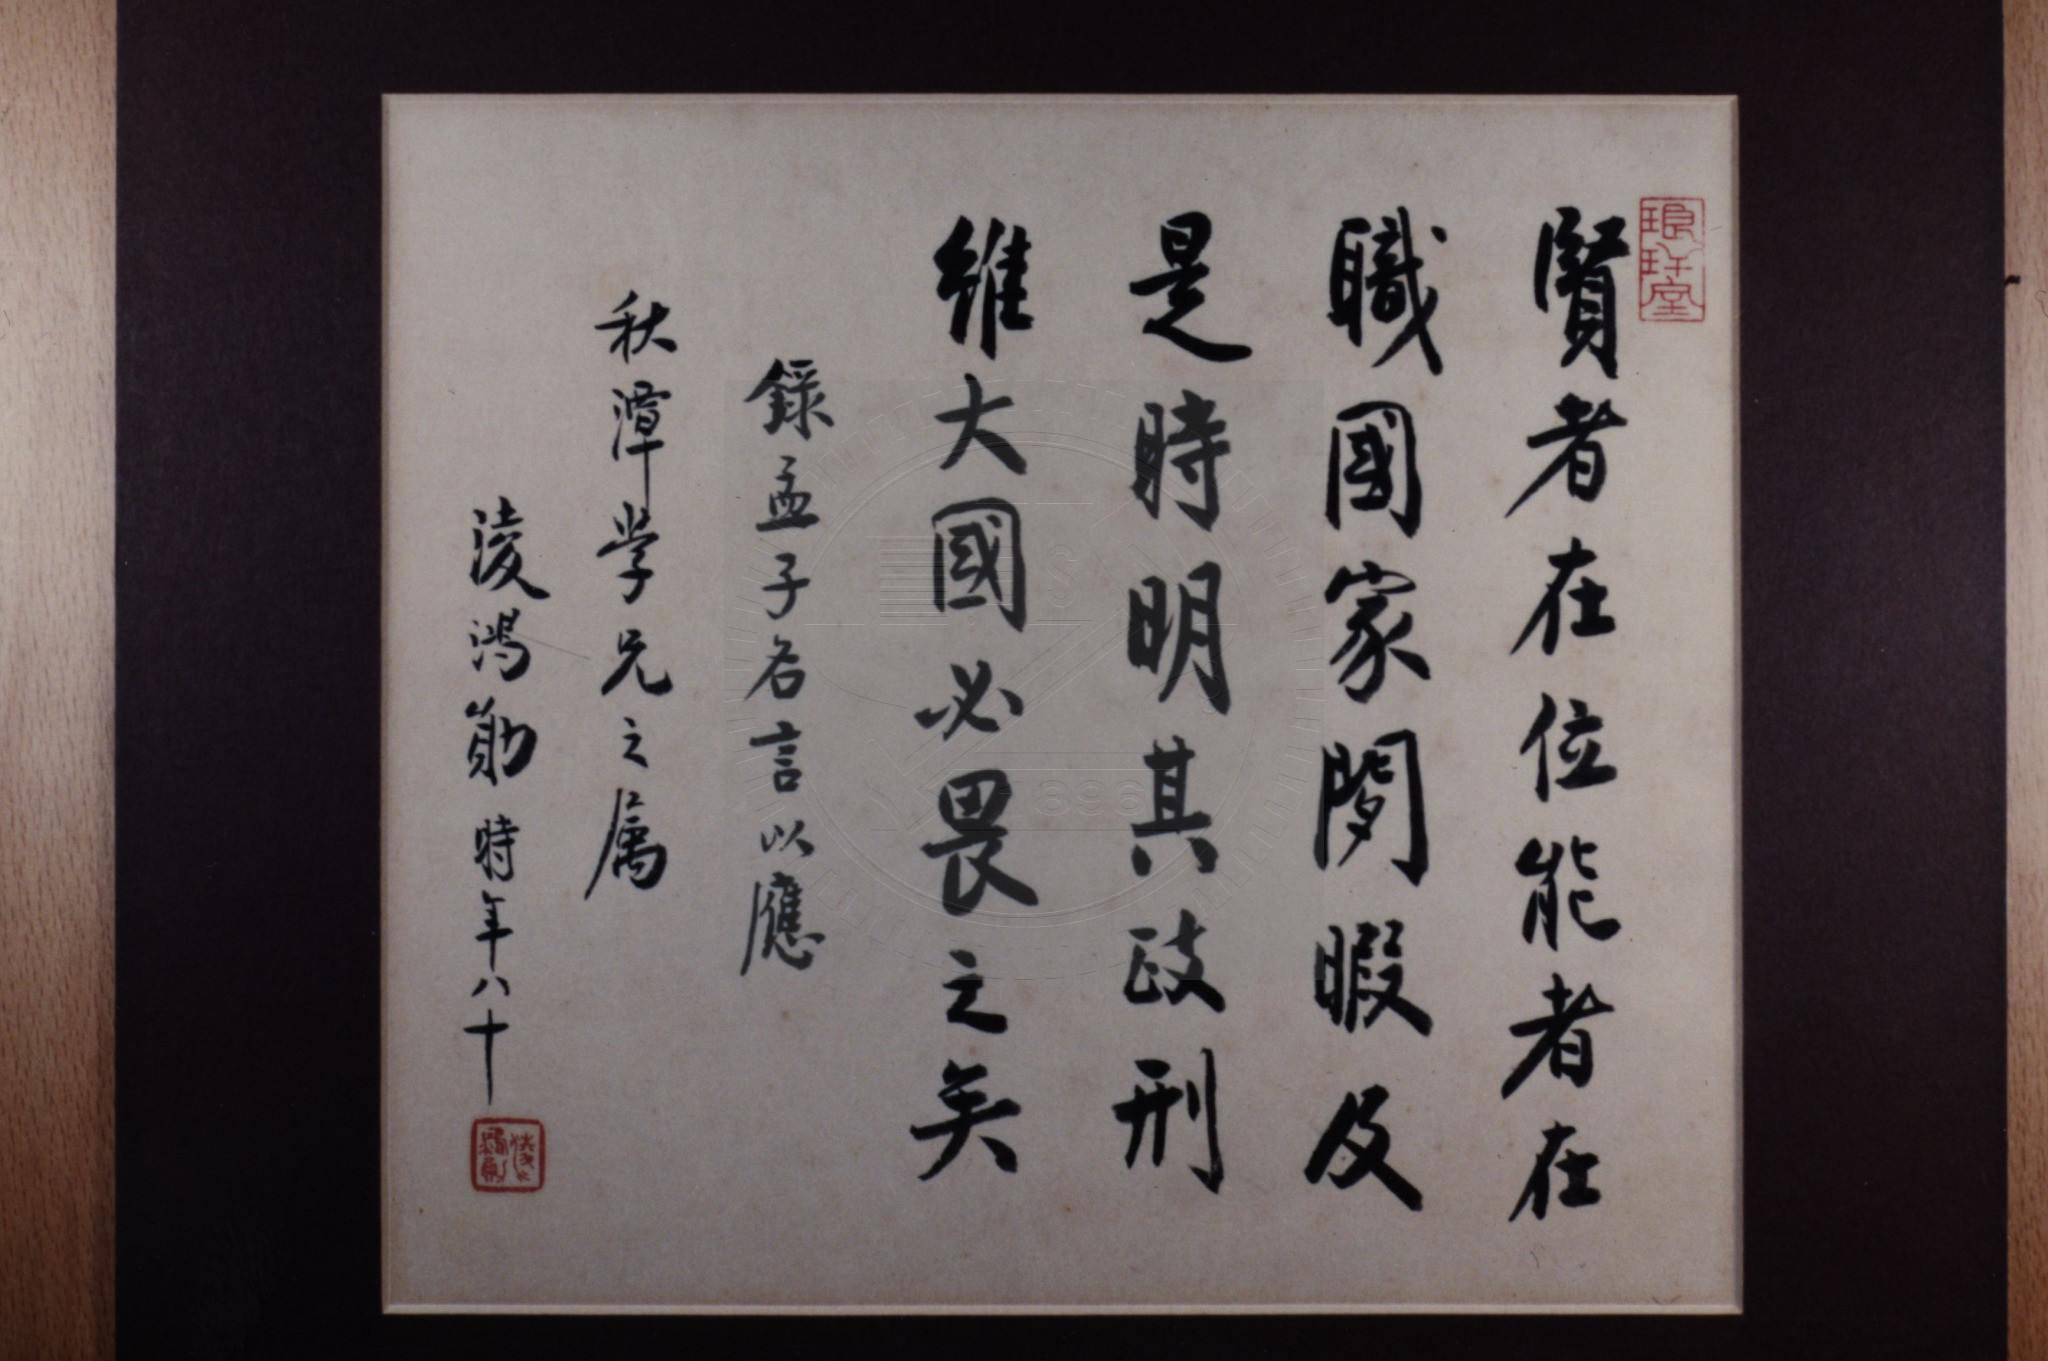 琅玕堂
賢者在位能者在
職國家閒暇及
是時明其政刑
維大國必畏之矣
錄孟子名言以應
秋潭学兄之属
淩鴻勛時年八十
1896